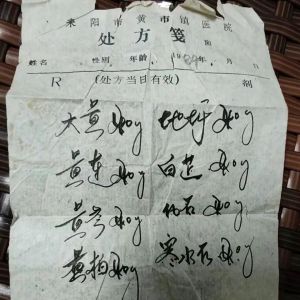 耒阳市黄市镇医院
处方笺
姓名 性别 年龄 19 年 月 日
R (处方当日有效) 剂
大黄 40g 地榆 40g
黄连 40g 白芷 40g
黄芩 40g 40g
黄柏 40g 寒水石 40g